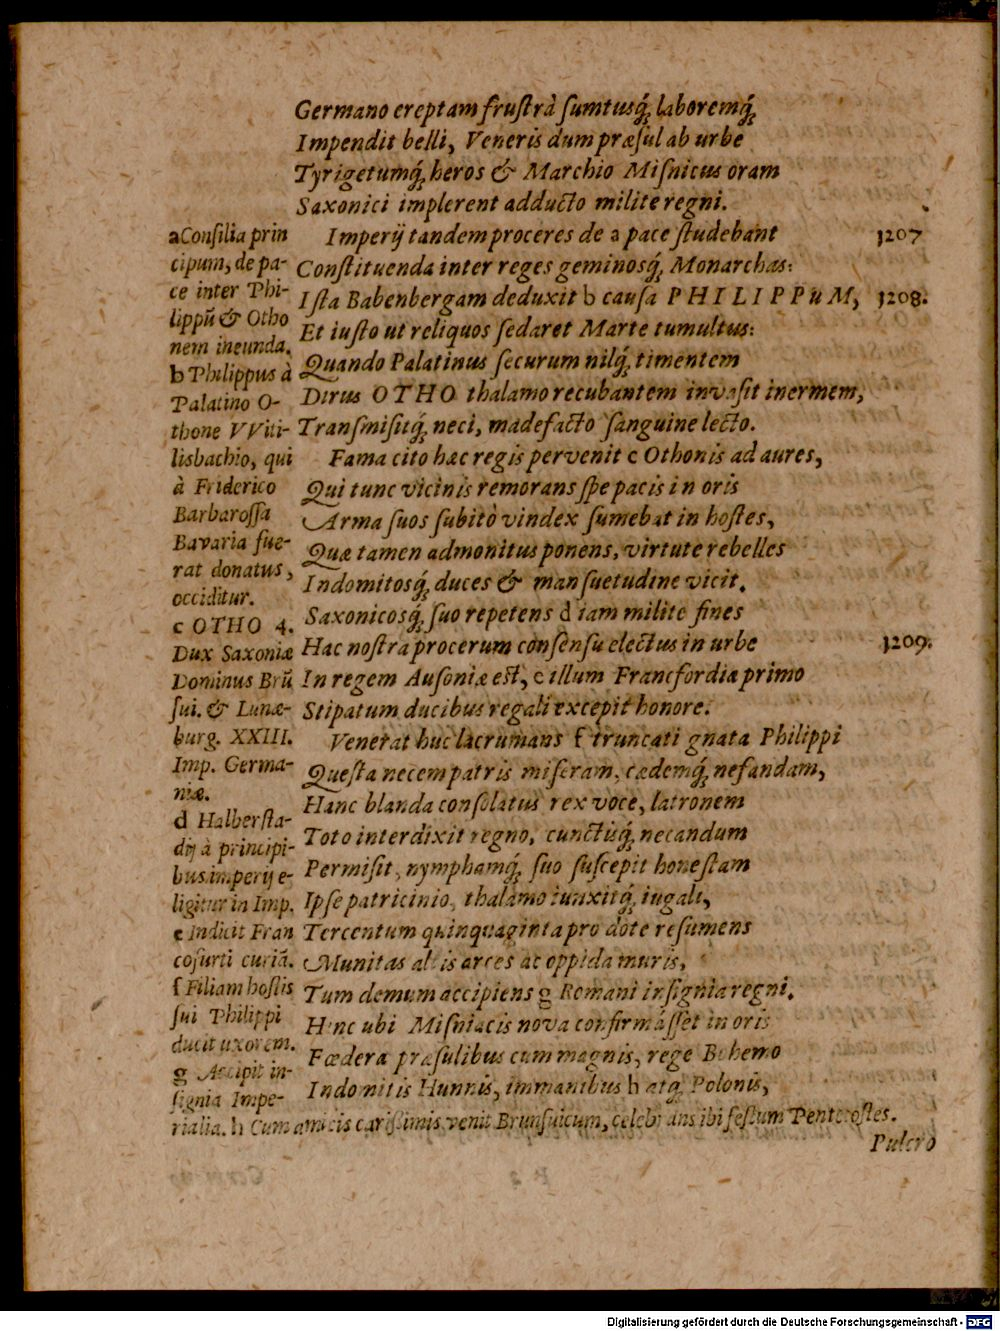 Germano ereptam frustrà sumtusq́; laboremq́;
Impendit belli, Veneris dum præsul ab urbe
Tyrigetumq́; heros & Marchio Misnicus oram
Saxonici implerent adducto milite regni.
Imperij tandem proceres de a pace studebant
1207
Constituenda inter reges geminosq́; Monarchas:
Ista Babenbergam deduxit b causa PHILIPPuM,
1208.
Et iusto ut reliquos sedaret Marte tumultus:
Quando Palatinus securum nilq́; timentem
Dirus OTHO thalamo recubantem invasit inermem,
Transmisitq́; neci, madefacto sanguine lecto.
Fama cito hæc regis pervenit c Othonis ad aures,
Qui tunc vicinis remorans spe pacis in oris
Arma suos subitò vindex sumebat in hostes,
Quæ tamen admonitus ponens, virtute rebelles
Indomitosq́; duces & mansuetudine vicit.
Saxonicosq́; suo repetens d iam milite fines
Hac nostra procerum consensu electus in urbe
1209.
In regem Ausoniæ est, e illum Francfordia primo
Stipatum ducibus regali excepit honore.
Venerat huc lacrumans f truncati gnata Philippi
Questa necem patris miseram, cædemq́; nefandam,
Hanc blanda consolatus rex voce, latronem
Toto interdixit regno, cunctisq́; necandum
Permisit, nymphamq́; suo suscepit honestam
Ipse patricinio, thalamo iunxitq́; iugali,
Tercentum quinquaginta pro dote resumens
Munitas altis arces ac oppida muris,
Tum demum accipiens g Romani insignia regni.
Hinc ubi Misniacis nova confirmásset in oris
Fœdera præsulibus cum magnis, rege Bohemo
Indomitis Hunnis, immanibus h atq́; Polonis,
a Consilia prin
cipum, de pa-
ce inter Phi-
lippū & Otho
nem ineunda.
b Philippus à
Palatino O-
thone VViti-
lisbachio, qui
à Friderico
Barbarossa
Bavaria fue-
rat donatus,
occiditur.
c OTHO 4.
Dux Saxoniæ
Dominus Brū
sui. & Lunæ-
burg. XXIII.
Imp. Germa-
niæ.
d Halbersta-
dij à principi-
bus imperij e-
ligitur in Imp.
e Indicit Fran
cofurti curiā.
f Filiam hostis
sui Philippi
ducit uxorem.
g Accipit in-
signia Impe-
rialia. h Cum amicis carissimis venit Brunsuicum, celebrans ibi festum Pentecostes.
Pulcro
Digitalisierung gefördert durch die Deutsche Forschungsgemeinschaft - DFG